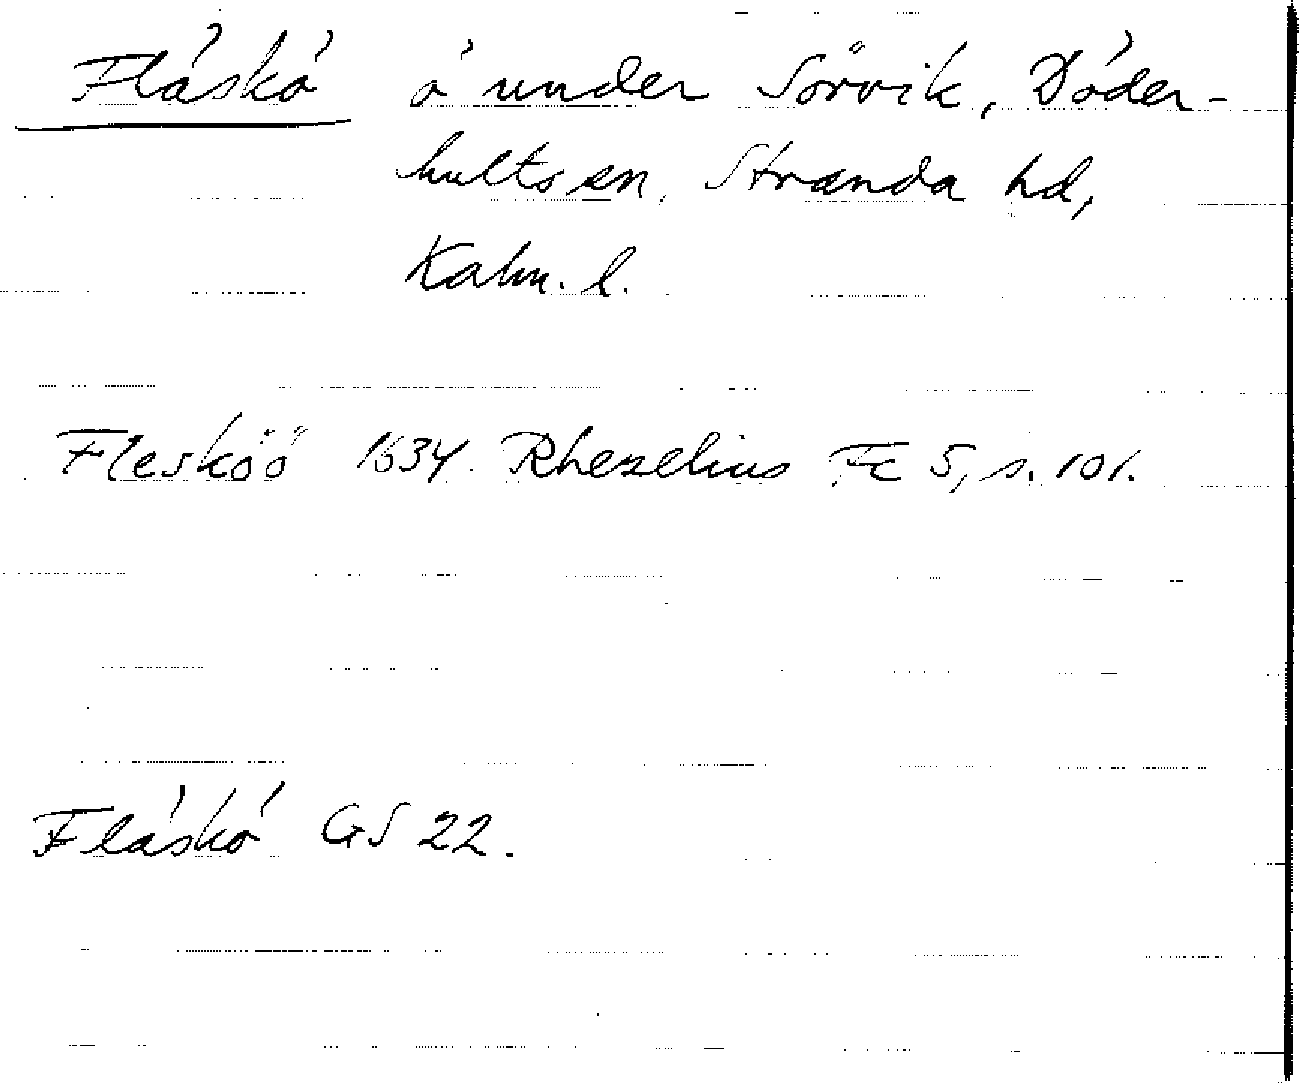 Fläskö ö under Sörvik, Döder-
hults sn, Stranda hd,
Kalm. l.
Flesköö 1634. Rhezelius Fc 5, s. 101.
Fläskö GS 22.